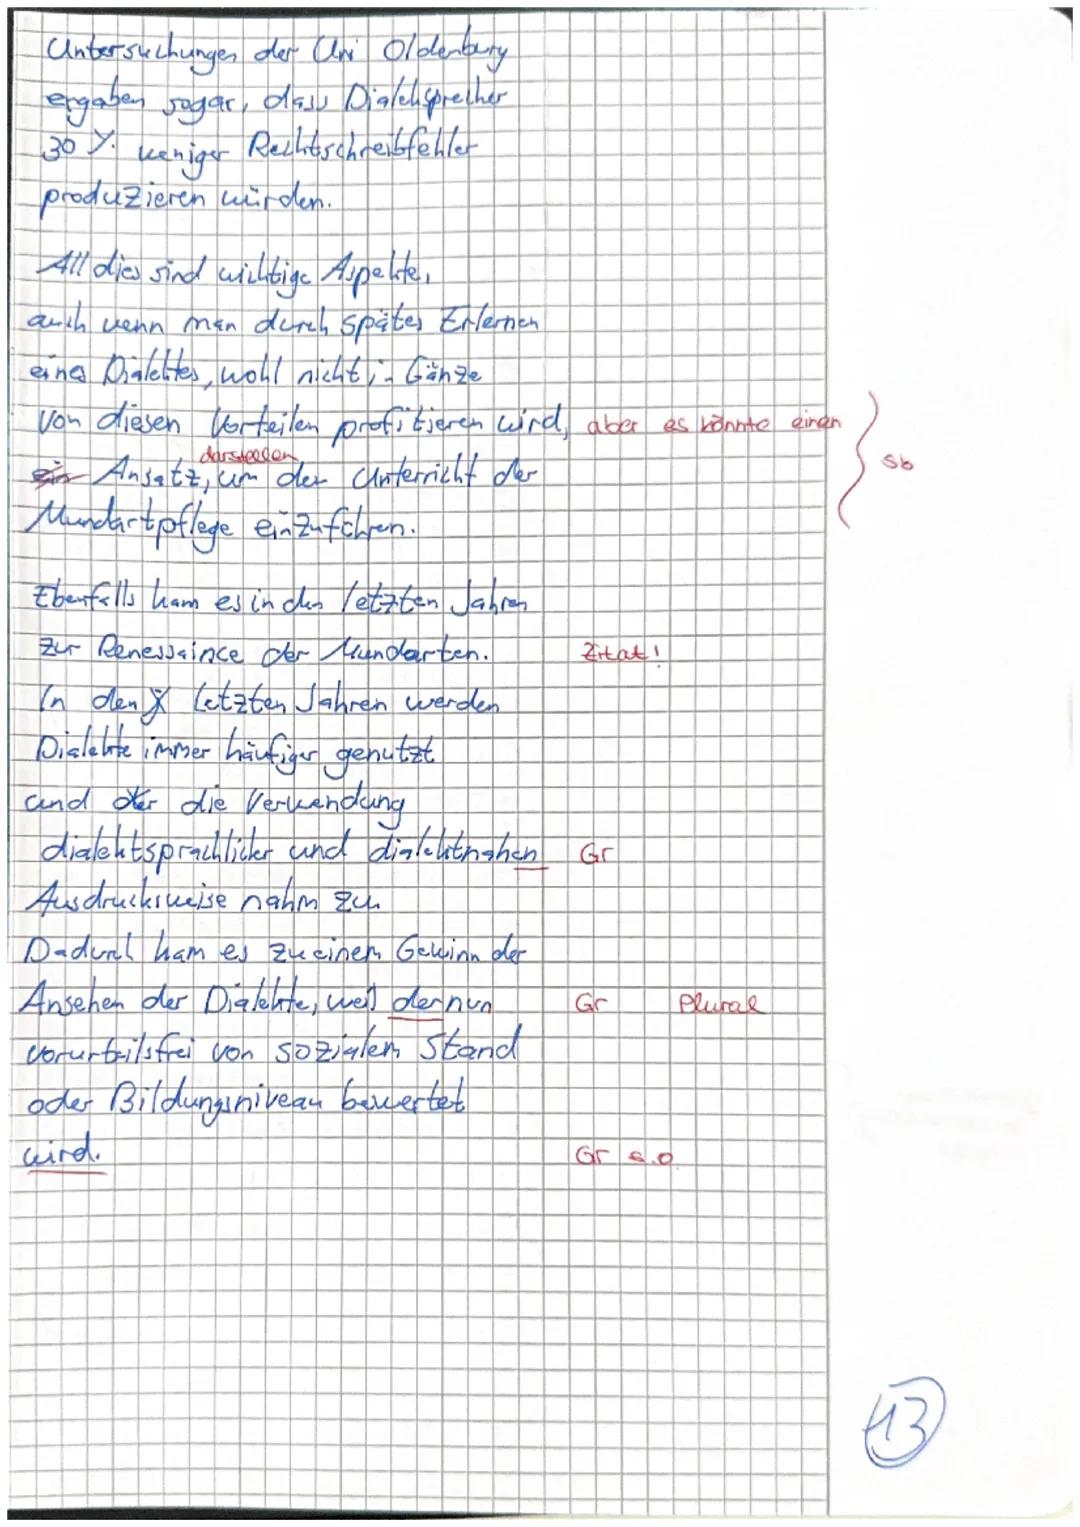 Untersuchungen der Uni Oldenburg
ergaben sogar, dass Dialektsprecher
30 % weniger Rechtschreibfehler
produzieren würden.
All dies sind wichtige Aspekte,
auch wenn man durch spätes Erlernen
eines Dialektes, wohl nicht in Gänze
von diesen Vorteilen profitieren wird, aber es könnte einen
darstellen
ein Ansatz, um den Unterricht der
Sb
Mundartpflege einzuführen.
Ebenfalls kam es in den letzten Jahren
zur Renessaince der Mundarten. Zitat!
In den letzten Jahren werden
Dialekte immer häufiger genutzt
und die Verwendung
dialektsprachlicher und dialektnahen Gr
Ausdrucksweise nahm zu.
Dadurch kam es zu einem Gewinn der
Ansehen der Dialekte, weil der nun Gr Plural
vorurteilsfrei von sozialem Stand
oder Bildungsniveau bewertet
wird. Gr s.o.
13